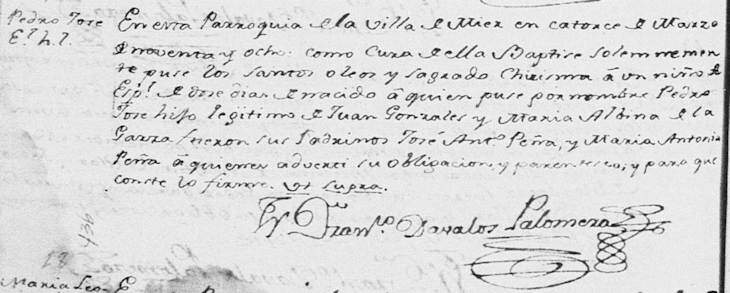 Pedro José
E.l h. l.
En esta Parroquia de la Villa de Mier en catorce de Marzo
de noventa y ocho: como Cura de ella Baptise solemnemen
te puse los santos oleos y sagrado Chrisma â un niño
Esp.l de dose dias de nacido â quien puse por nombre Pedro
Jose hijo legitimo de Juan Gonzales y Maria Albina de la
Garza fueron sus Padrinos José Ant.o Peña, y Maria Antonia
Peña â quienes adverti su obligacion, y parentesco, y para que
conste lo firme. Ut supra.
Fr. Fran.co Davalos Palomera
436
Maria